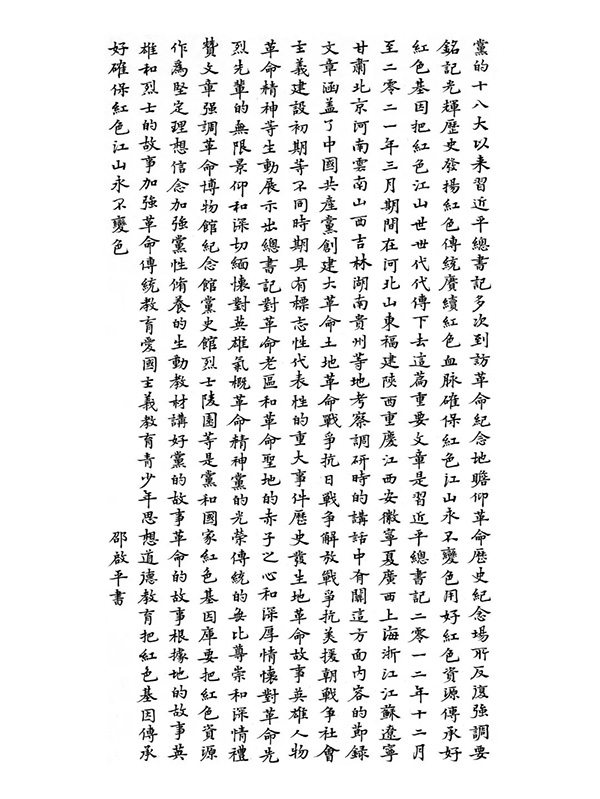 黨的十八大以来習近平總書記多次到訪革命紀念地瞻仰革命歷史紀念場所反復強調要
銘記光輝歷史發揚紅色傳統賡續紅色血脉確保紅色江山永不變色用好紅色資源傳承好
紅色基因把紅色江山世世代代傳下去這篇重要文章是習近平總書記二零一二年十二月
至二零二一年三月期間在河北山東福建陝西重慶江西安徽寧夏廣西上海浙江江蘇遼寧
甘肅北京河南雲南山西吉林湖南貴州等地考察調研時的講話中有關這方面内容的節録
文章涵蓋了中國共產黨創建大革命土地革命戰爭抗日戰爭解放戰爭抗美援朝戰爭社會
主義建設初期等不同時期具有標志性代表性的重大事件歷史發生地革命故事英雄人物
革命精神等生動展示出總書記對革命老區和革命聖地的赤子之心和深厚情懷對革命先
烈先輩的無限景仰和深切緬懷對英雄氣概革命精神黨的光榮傳統的無比尊崇和深情禮
贊文章強調革命博物館紀念館黨史館烈士陵園等是黨和國家紅色基因庫要把紅色資源
作為堅定理想信念加強黨性脩養的生動教材講好黨的故事革命的故事根據地的故事英
雄和烈士的故事加強革命傳統教育愛國主義教育青少年思想道德教育把紅色基因傳承
好確保紅色江山永不變色
邵啟平書